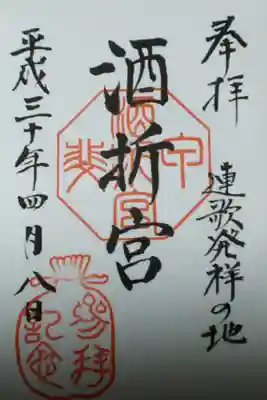 奉拝
連歌発祥の地
酒折宮
平成三十年四月八日
甲斐
酒折宮
参拝記念